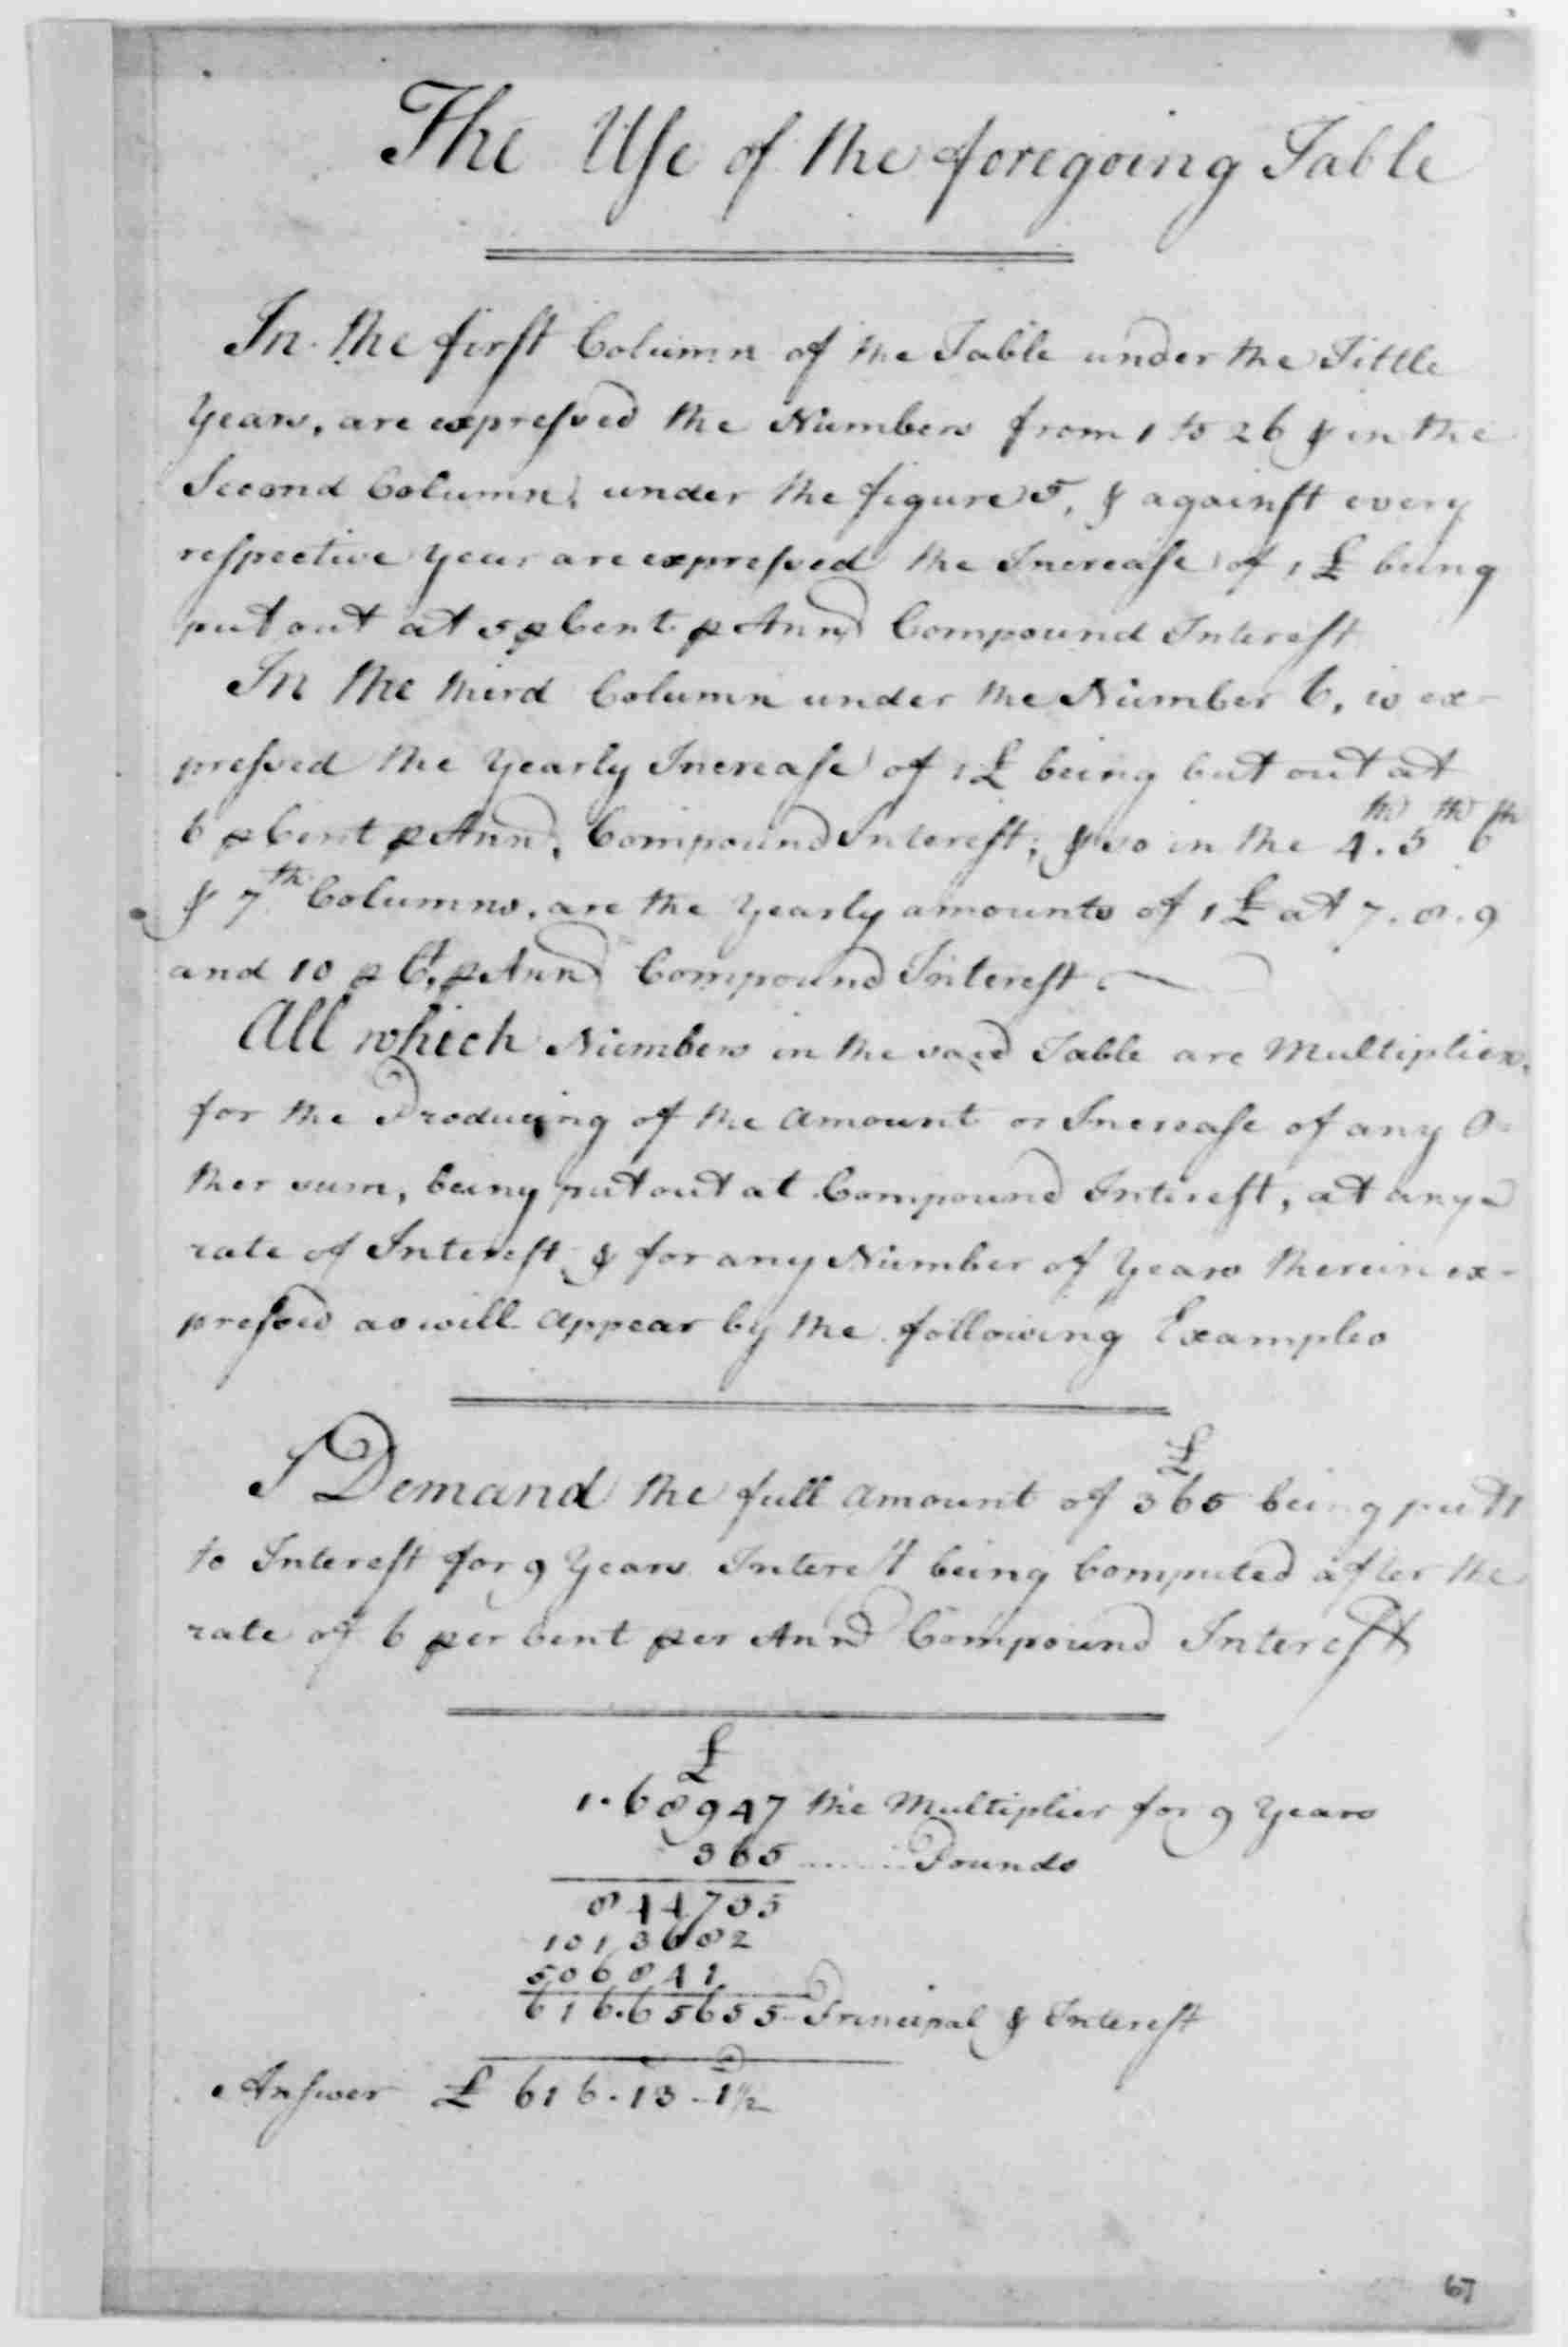 The Use of the foregoing Table
In the first Column of the Table under the Tittle
Years, are expressed the Numbers from 1 to 26 & in the
Second Column, under the figure 5, & against every
respective Year are expressed the Increase of 1 £ being
put out at 5 p Cent p Ann Compound Interest
In the third Column under the Number 6, is ex-
pressed the Yearly Increase of 1 £ being but out at
6 p Cent p Ann, Compound Interest; & so in the 4th. 5th 6th
& 7th Columns, are the Yearly amounts of 1 £ at 7. 8. 9
and 10 p Ct, p Ann Compound Interest.
All which Numbers in the said Table are Multipliers,
for the Producing of the Amount or Increase of any O=
ther sum, being put out at Compound Interest, at any
rate of Interest & for any Number of Years therein ex-
pressed as will Appear by the following Examples
I Demand the full Amount of £365 being putt
to Interest for 9 Years Interest being Computed after the
rate of 6 per Cent per Ann Compound Interest
£
1.68947 the Multiplier for 9 Years
365 ........ Pounds
844735
1013682
506841
616.65655 - Principal & Interest
Answer £ 616.13-1 1/2
67